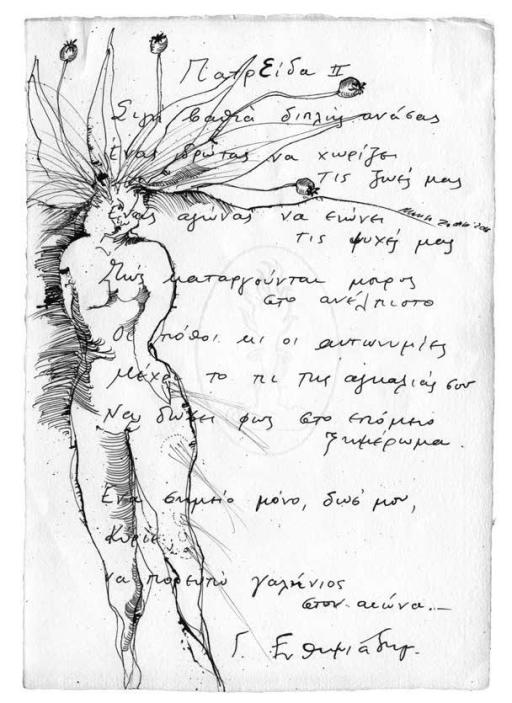 ΠατρΕίδα ΙΙ
Σιγή βαθιά διπλής ανάσας
Ένας ιδρώτας να χωρίζει
τις ζωές μας
Ένας αγώνας να ενώνει
τις ψυχές μας
Πώς καταργούνται μπρος
στο ανέλπιστο
Οι πόθοι κι οι αντωνυμίες
Μέχρι το πι της αγκαλιάς σου
Να δώσει φως στο επόμενο
ξημέρωμα.
Ένα σημείο μόνο, δωσ' μου,
Κύριε
να πορευτώ γαλήνιος
στον αιώνα._
Γ. Ευθυμιάδης.